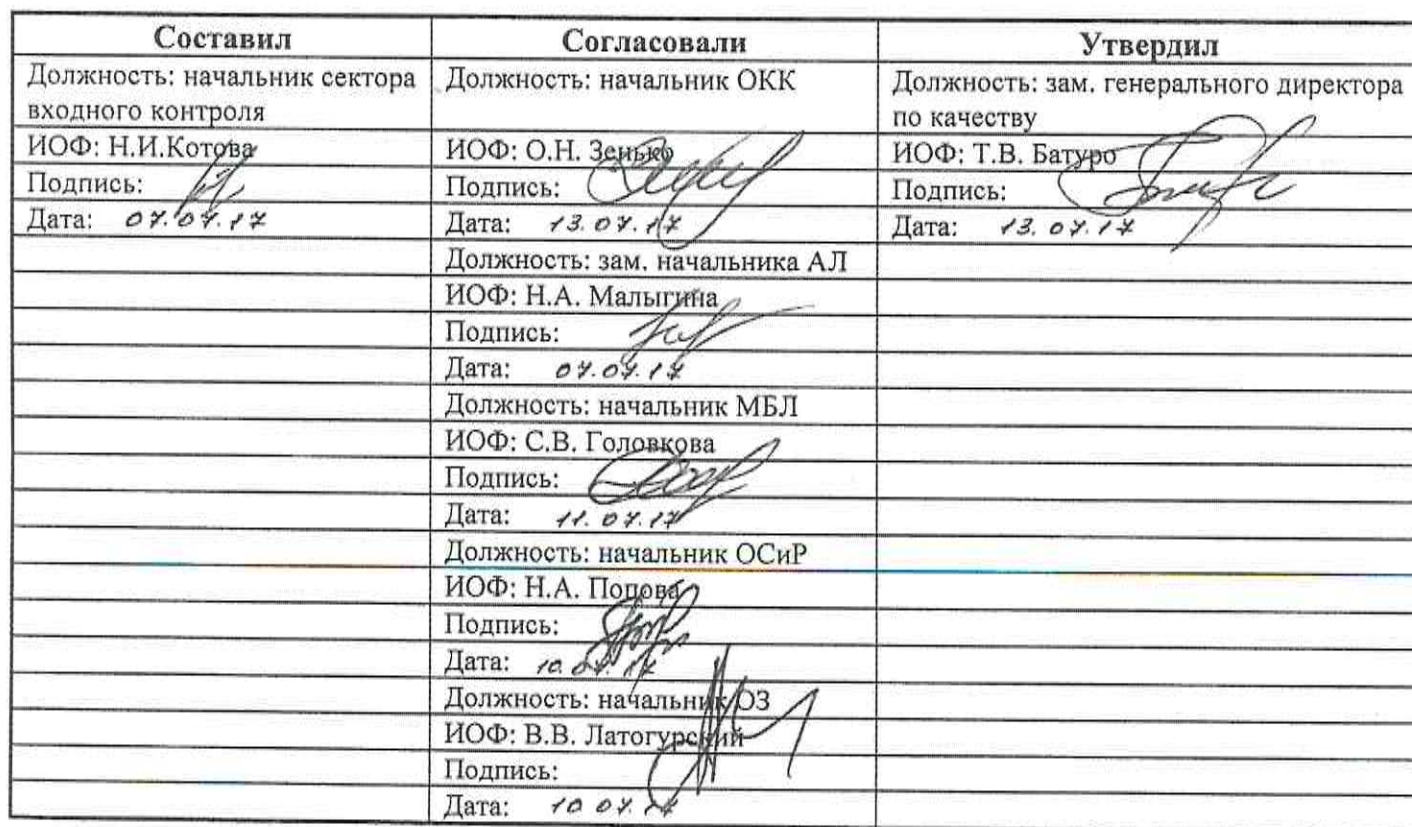 Составил Согласовали Утвердил
Должность: начальник сектора Должность: начальник ОКК Должность: зам. генерального директора
входного контроля по качеству
ИОФ: Н.И.Котова ИОФ: О.Н. Зенько ИОФ: Т.В. Батуро
Подпись: Подпись: Подпись:
Дата: 07.07.17 Дата: 13.07.17 Дата: 13.07.17
Должность: зам. начальника АЛ
ИОФ: Н.А. Малыгина
Подпись:
Дата: 07.07.17
Должность: начальник МБЛ
ИОФ: С.В. Головкова
Подпись:
Дата: 11.07.17
Должность: начальник ОСиР
ИОФ: Н.А. Попова
Подпись:
Дата: 10.07.17
Должность: начальник ОЗ
ИОФ: В.В. Латогурский
Подпись:
Дата: 10.07.17